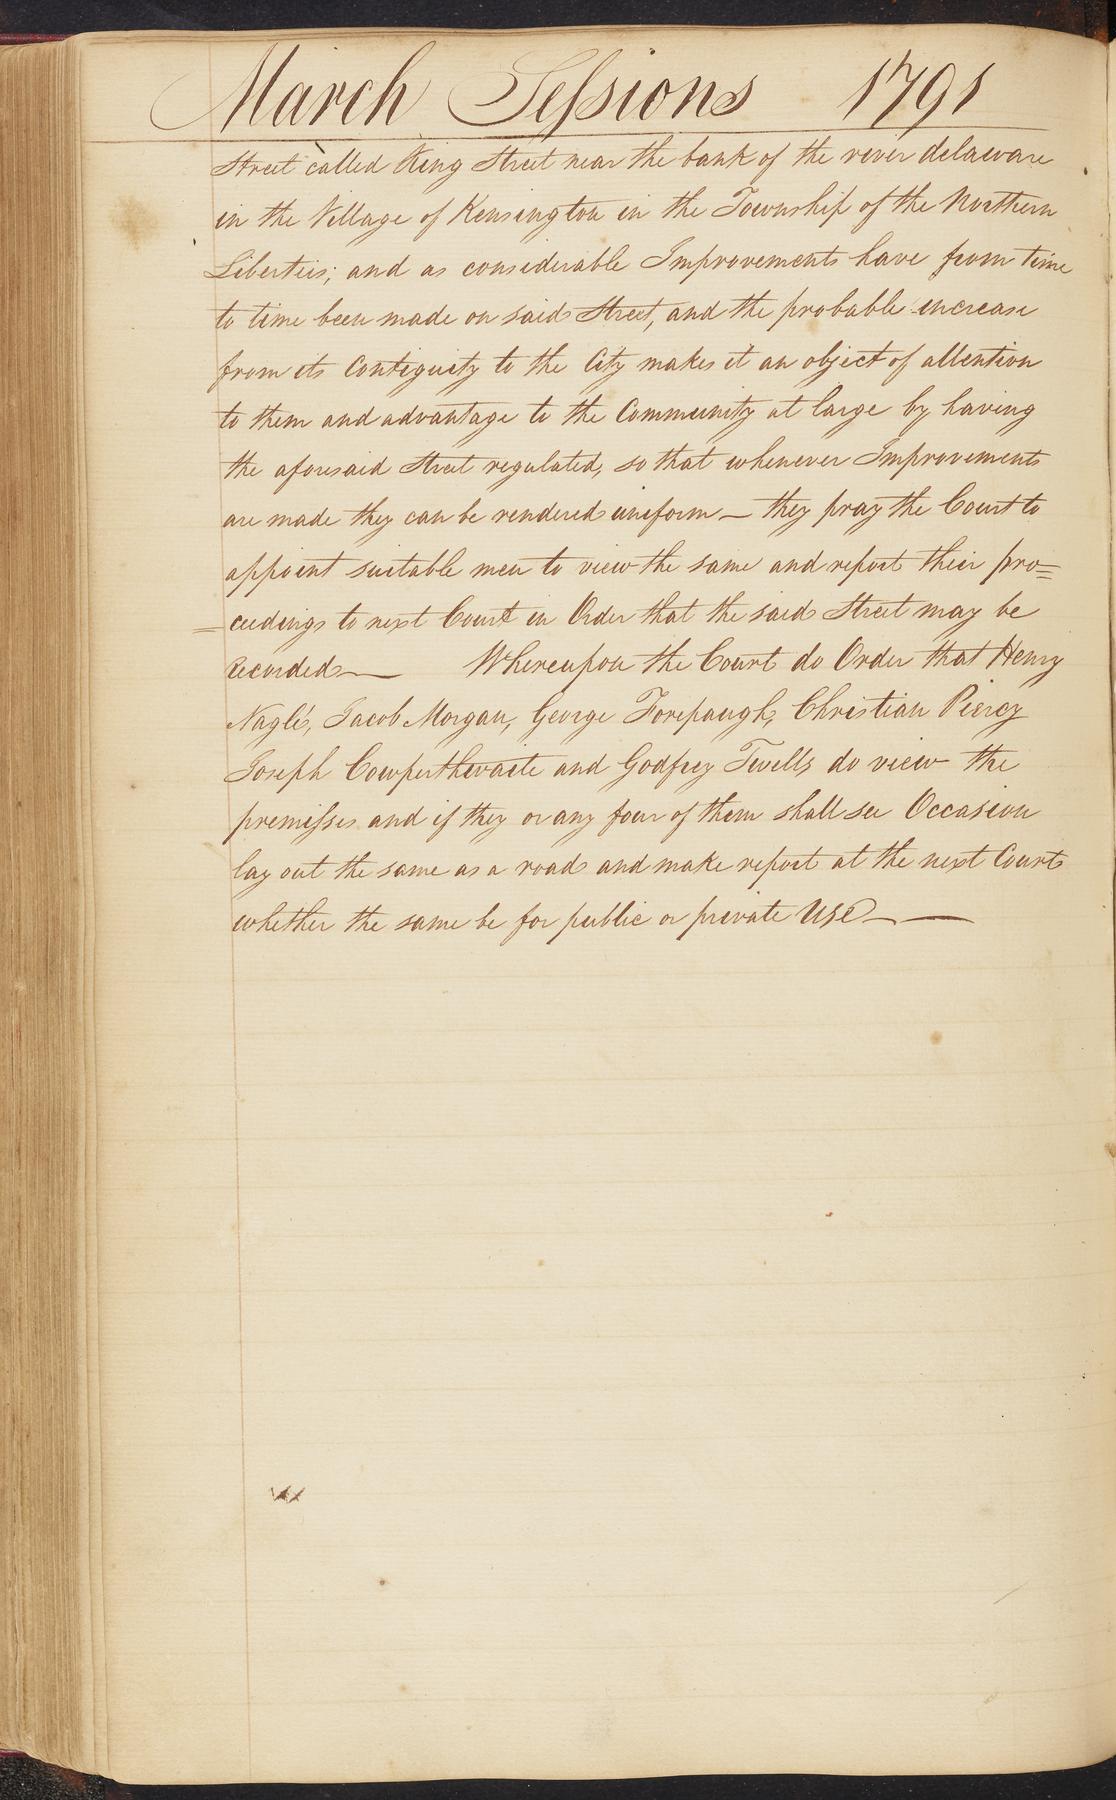 March Sessions 1791
Street called King Street near the bank of the river delaware
in the Village of Kensington in the Township of the Northern
Liberties; and as considerable Improvements have from time
to time been made on said Street, and the probable increase
from its Contiguity to the City makes it an object of attention
to them and advantage to the Community at large by having
the aforesaid Street regulated, so that whenever Improvements
are made they can be rendered uniform — they pray the Court to
appoint suitable men to view the same and report their pro=
=ceedings to next Court in Order that the said Street may be
recorded — Whereupon the Court do Order that Henry
Naglé, Jacob Morgan, George Forepaugh, Christian Piercy
Joseph Cowperthwaite and Godfrey Twells do view the
premisses and if they or any four of them shall see Occasion
lay out the same as a road and make report at the next Court
whether the same be for public or private Use — —